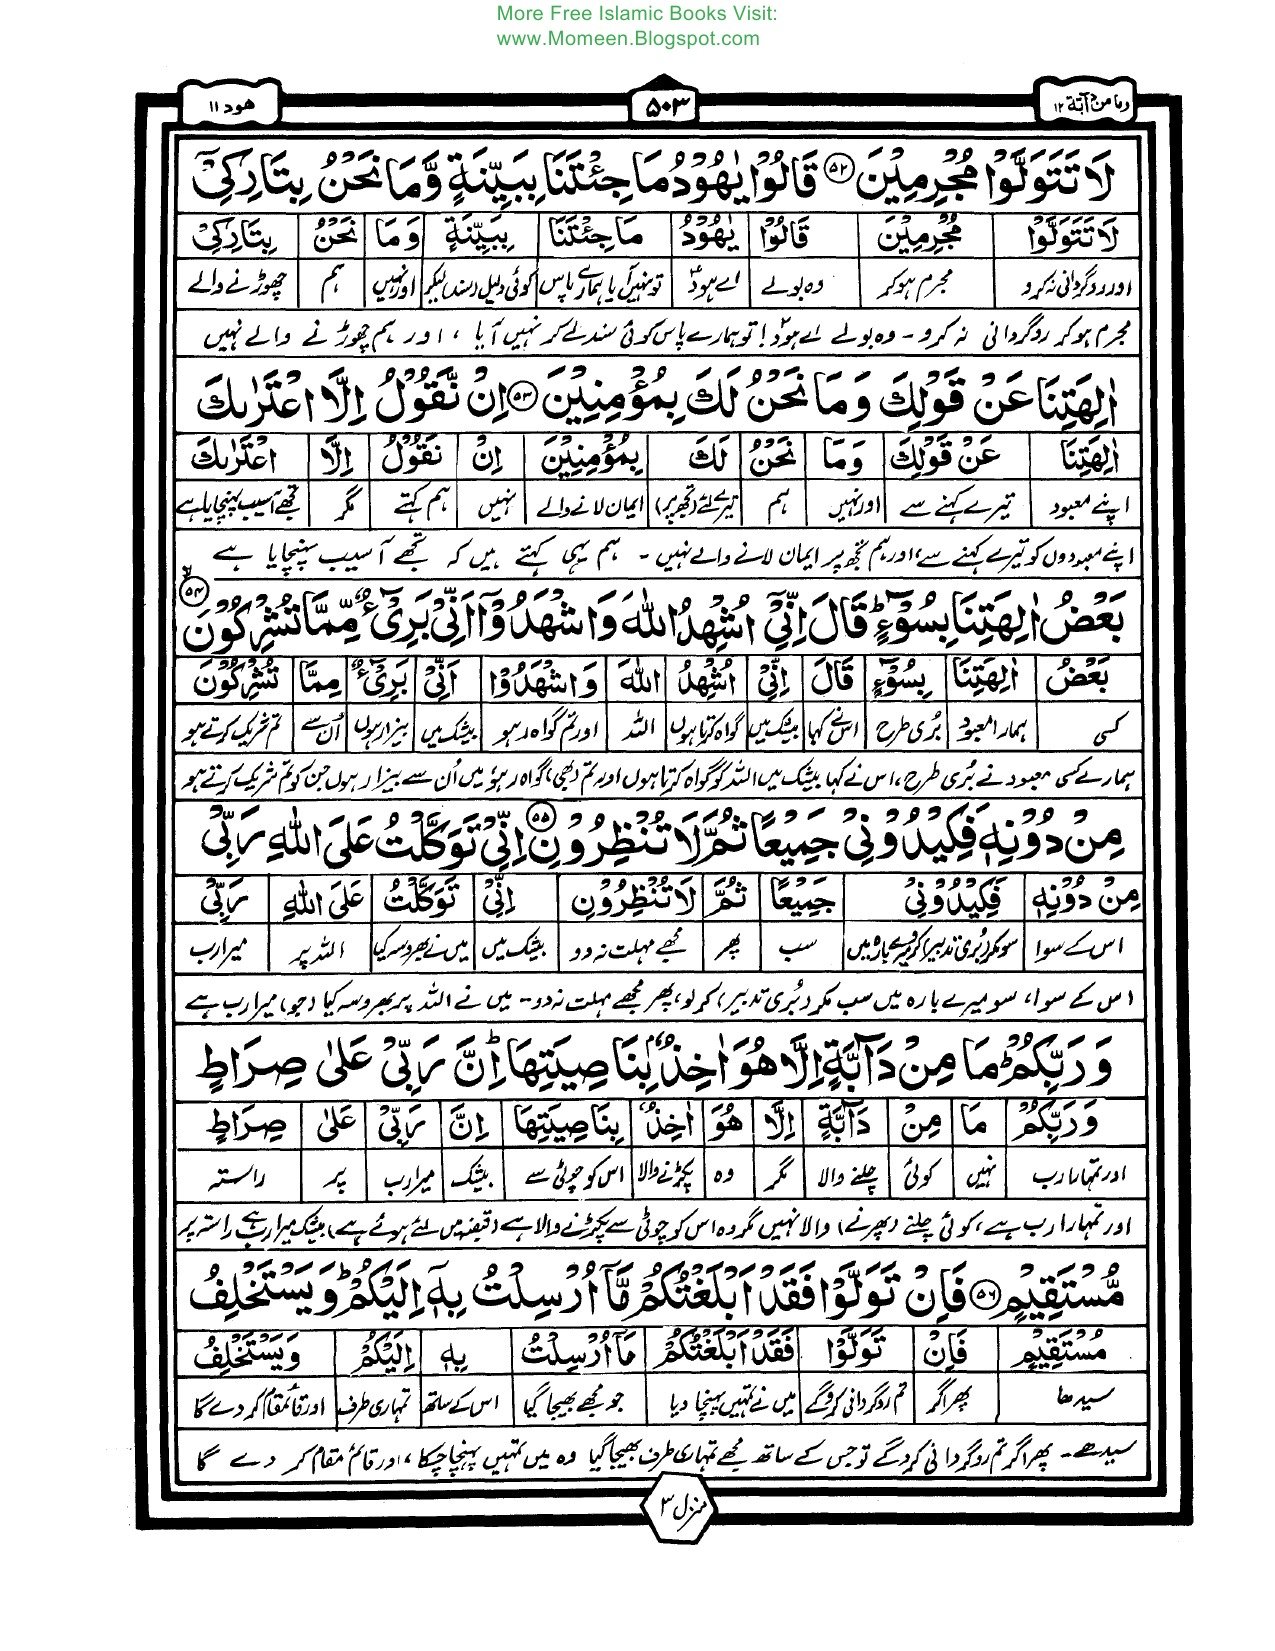 More Free Islamic Books Visit:
www.Momeen.Blogspot.com
وما من دآبة ۱۲ ۵۰۳ هود ۱۱
لَا تَتَوَلَّوْا مُجْرِمِيْنَ ﴿۵۲﴾ قَالُوْا يٰهُوْدُ مَا جِئْتَنَا بِبَيِّنَةٍ وَّمَا نَحْنُ بِتَارِكِيْٓ
لَا تَتَوَلَّوْا مُجْرِمِيْنَ قَالُوْا يٰهُوْدُ مَا جِئْتَنَا بِبَيِّنَةٍ وَمَا نَحْنُ بِتَارِكِيْٓ
اور روگردانی نہ کرو مجرم ہو کر وہ بولے اے ہودؑ تو نہیں آیا ہمارے پاس کوئی دلیل (سند) لیکر اور نہیں ہم چھوڑنے والے
مجرم ہو کر روگردانی نہ کرو۔ وہ بولے اے ہودؑ! تو ہمارے پاس کوئی سند لے کر نہیں آیا ، اور ہم چھوڑنے والے نہیں
اٰلِهَتِنَا عَنْ قَوْلِكَ وَمَا نَحْنُ لَكَ بِمُؤْمِنِيْنَ ﴿۵۳﴾ اِنْ نَّقُوْلُ اِلَّا اعْتَرٰىكَ
اٰلِهَتِنَا عَنْ قَوْلِكَ وَمَا نَحْنُ لَكَ بِمُؤْمِنِيْنَ اِنْ نَقُوْلُ اِلَّا اعْتَرٰىكَ
اپنے معبود تیرے کہنے سے اور نہیں ہم تیرے لئے (تجھ پر) ایمان لانے والے نہیں ہم کہتے مگر تجھے آسیب پہنچایا ہے
اپنے معبودوں کو تیرے کہنے سے، اور ہم تجھ پر ایمان لانے والے نہیں۔ ہم یہی کہتے ہیں کہ تجھے آسیب پہنچایا ہے
بَعْضُ اٰلِهَتِنَا بِسُوْٓءٍ ؕ قَالَ اِنِّيْٓ اُشْهِدُ اللّٰهَ وَاشْهَدُوْٓا اَنِّيْ بَرِيْٓءٌ مِّمَّا تُشْرِكُوْنَ ﴿۵۴﴾
بَعْضُ اٰلِهَتِنَا بِسُوْٓءٍ قَالَ اِنِّيْٓ اُشْهِدُ اللّٰهَ وَاشْهَدُوْٓا اَنِّيْ بَرِيْٓءٌ مِمَّا تُشْرِكُوْنَ
کسی ہمارا معبود بُری طرح اس نے کہا بیشک میں گواہ کرتا ہوں اللہ اور تم گواہ رہو بیشک میں بیزار ہوں اُن سے تم شریک کرتے ہو
ہمارے کسی معبود نے بُری طرح، اس نے کہا بیشک میں اللہ کو گواہ کرتا ہوں اور تم (بھی) گواہ رہو میں اُن سے بیزار ہوں جن کو تم شریک کرتے ہو
مِنْ دُوْنِهٖ فَكِيْدُوْنِيْ جَمِيْعًا ثُمَّ لَا تُنْظِرُوْنِ ﴿۵۵﴾ اِنِّيْ تَوَكَّلْتُ عَلَى اللّٰهِ رَبِّيْ
مِنْ دُوْنِهٖ فَكِيْدُوْنِيْ جَمِيْعًا ثُمَّ لَا تُنْظِرُوْنِ اِنِّيْ تَوَكَّلْتُ عَلَى اللّٰهِ رَبِّيْ
اس کے سوا سو مکر (بُری تدبیر) کرو میرے بارہ میں سب پھر مجھے مہلت نہ دو بیشک میں میں نے بھروسہ کیا اللہ پر میرا رب
اس کے سوا، سو میرے بارہ میں سب مکر (بُری تدبیر) کر لو، پھر مجھے مہلت نہ دو۔ میں نے اللہ پر بھروسہ کیا (جو) میرا رب ہے
وَرَبِّكُمْ ؕ مَا مِنْ دَآبَّةٍ اِلَّا هُوَ اٰخِذٌۢ بِنَاصِيَتِهَا ؕ اِنَّ رَبِّيْ عَلٰى صِرَاطٍ
وَرَبِّكُمْ مَا مِنْ دَآبَّةٍ اِلَّا هُوَ اٰخِذٌۢ بِنَاصِيَتِهَا اِنَّ رَبِّيْ عَلٰى صِرَاطٍ
اور تمہارا رب نہیں کوئی چلنے والا مگر وہ پکڑنے والا اس کو چوٹی سے بیشک میرا رب پر راستہ
اور تمہارا رب ہے، کوئی چلنے (پھرنے) والا نہیں مگر وہ اس کو چوٹی سے پکڑنے والا ہے (قبضہ میں لئے ہوئے ہے) بیشک میرا رب ہے راستہ پر
مُّسْتَقِيْمٍ ﴿۵۶﴾ فَاِنْ تَوَلَّوْا فَقَدْ اَبْلَغْتُكُمْ مَّآ اُرْسِلْتُ بِهٖٓ اِلَيْكُمْ ؕ وَيَسْتَخْلِفُ
مُسْتَقِيْمٍ فَاِنْ تَوَلَّوْا فَقَدْ اَبْلَغْتُكُمْ مَآ اُرْسِلْتُ بِهٖٓ اِلَيْكُمْ وَيَسْتَخْلِفُ
سیدھا پھر اگر تم روگردانی کرو گے میں نے تمہیں پہنچا دیا جو مجھے بھیجا گیا اس کے ساتھ تمہاری طرف اور قائم مقام کر دے گا
سیدھے۔ پھر اگر تم روگردانی کرو گے تو جس کے ساتھ مجھے تمہاری طرف بھیجا گیا وہ میں تمہیں پہنچا چکا ، اور قائم مقام کر دے گا
منزل ۳